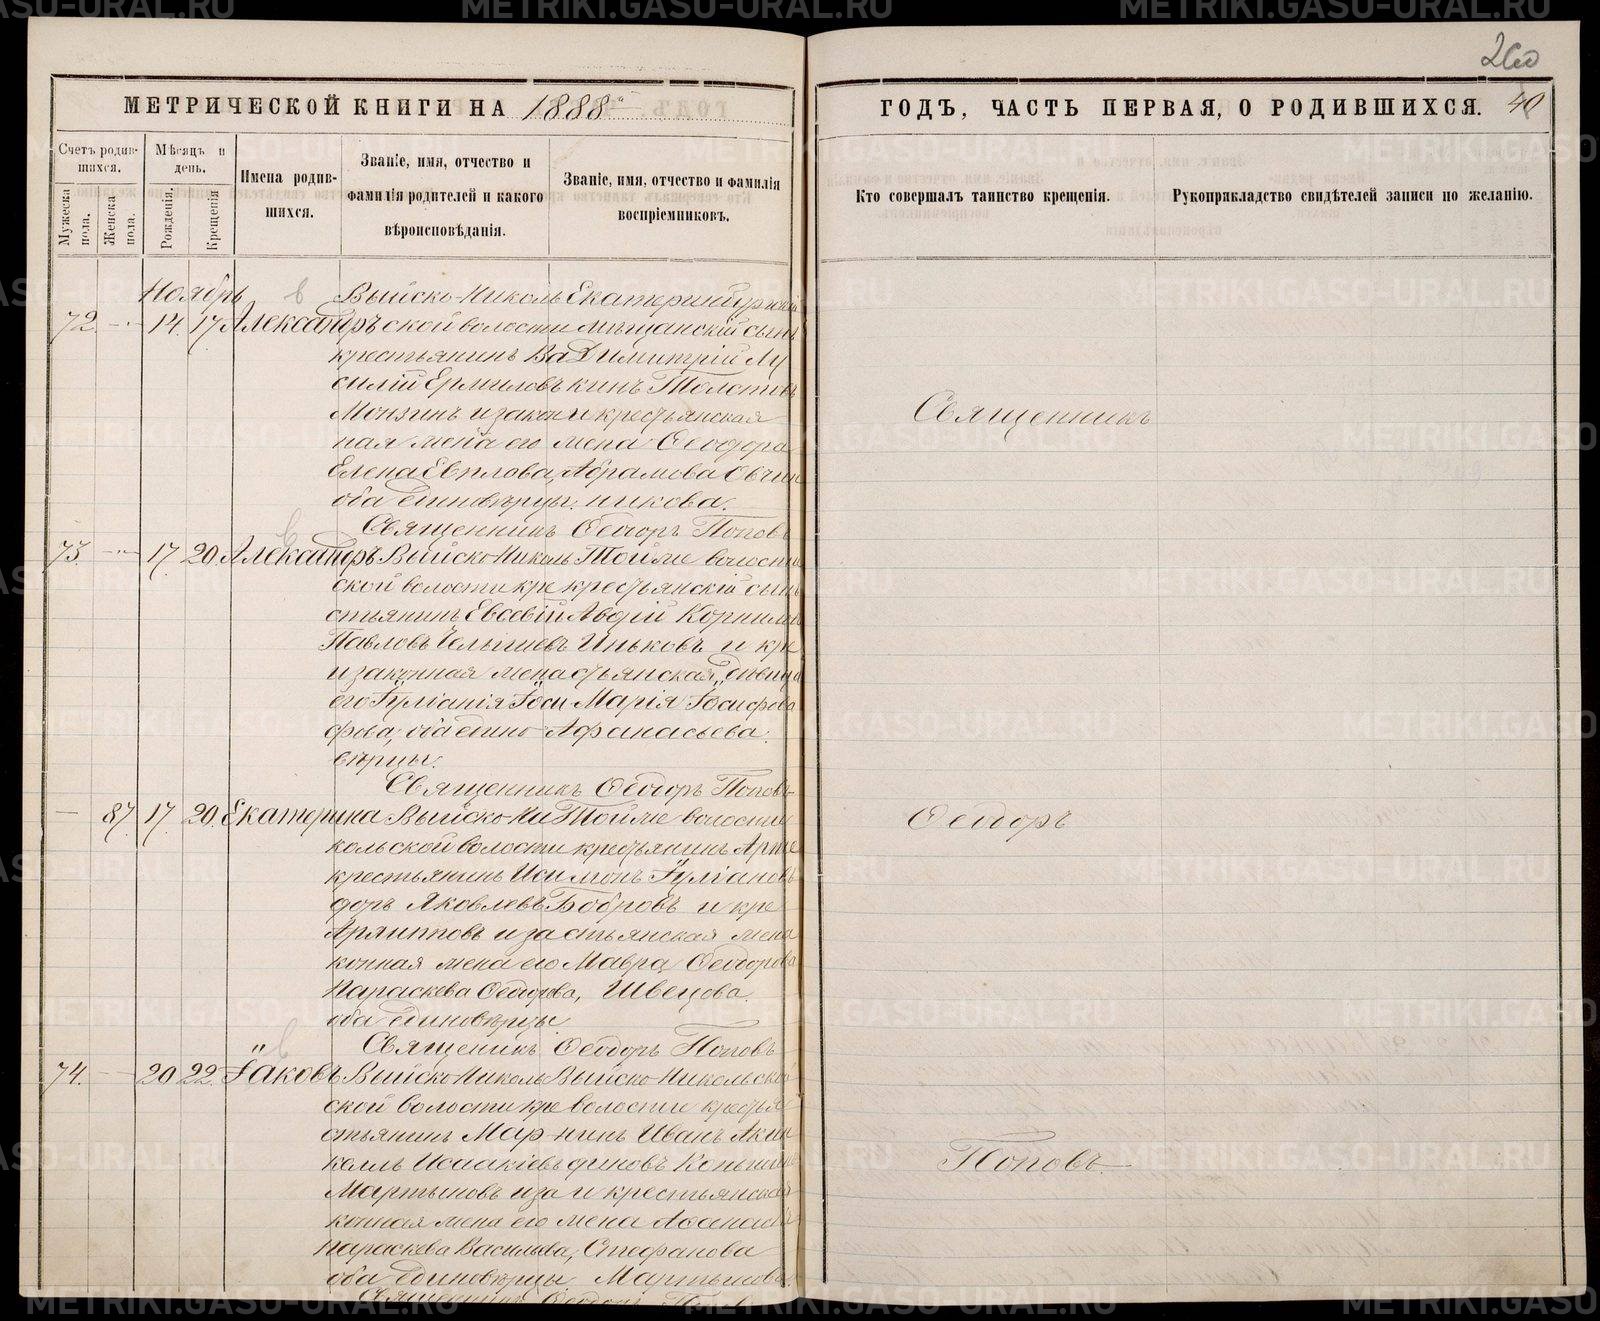 260
МЕТРИЧЕСКОЙ КНИГИ НА 1888й
ГОДЪ, ЧАСТЬ ПЕРВАЯ, О РОДИВШИХСЯ. 40
Счетъ родив-
шихся.
Мужеска
пола.
Женска
пола.
Мѣсяцъ и
день.
Рожденія.
Крещенія
Имена родив-
шихся.
Званіе, имя, отчество и
фамилія родителей и какого
вѣроисповѣданія.
Званіе, имя, отчество и фамилія
воспріемниковъ.
Кто совершалъ таинство крещенія.
Рукоприкладство свидѣтелей записи по желанію.
Ноябрь
72. 14. 17. Александръ
Выйско-Николь
ской волости
крестьянинъ Ва
силій Ермиловъ
Монзинъ и закон
ная жена его
Елена Евплова,
оба единовѣрцы.
Екатеринбургскій
мѣщанскій сынъ
Димитрій Лу
кинъ Толстовъ
и крестьянская
жена Ѳеодора
Абрамова Овчин
никова.
Священникъ Ѳеодоръ Поповъ
73. 17. 20. Александръ
Выйско-Николь
ской волости кре
стьянинъ Евсевій
Павловъ Челышевъ
и законная жена
его Іуліанія Іоси
фова, оба едино
вѣрцы.
Тойже волости
крестьянскій сынъ
Авдій Корнилов
Иньковъ и кре
стьянская дѣвица
Марія Іосифова
Афанасьева.
Священникъ Ѳеодоръ Поповъ
87. 17. 20. Екатерина
Выйско-Ни
кольской волости
крестьянинъ Иси
доръ Яковлевъ
Архиповъ и за
конная жена его
Параскева Ѳеодорова,
оба единовѣрцы.
Тойже волости
крестьянинъ Арте
монъ Іуліановъ
Бобровъ и кре
стьянская жена
Мавра Ѳеодорова
Швецова.
Священникъ Ѳеодоръ Поповъ
74. 20 22. Іаковъ
Выйско-Николь
ской волости кре
стьянинъ Мар-
келлъ Исаакіевъ
Мартыновъ и за
конная жена его
Параскева Васильева,
оба единовѣрцы
Выйско-Никольской
волости крестья
нинъ Иванъ Акин
финовъ Копытинъ
и крестьянская
жена
Стефанова
Мартынова
Священникъ Ѳеодоръ Поповъ
Священникъ
Ѳеодоръ
Поповъ.
METRIKI.GASO-URAL.RU